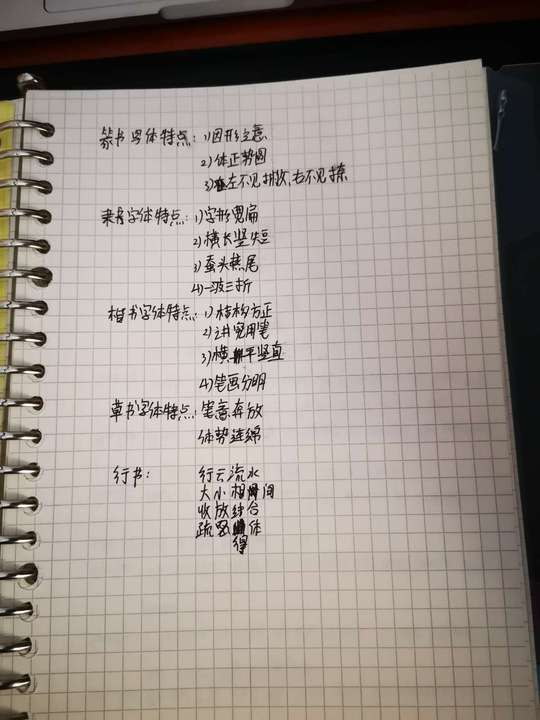 篆书字体特点：1)因形立意
2)体正势圆
3)左不见撇,右不见捺
隶书字体特点：1)字形宽扁
2)横长竖短
3)蚕头燕尾
4)一波三折
楷书字体特点：1)结构方正
2)讲究用笔
3)横平竖直
4)笔画分明
草书字体特点：笔意奔放
体势连绵
行书：行云流水
大小相间
收放结合
疏密得体